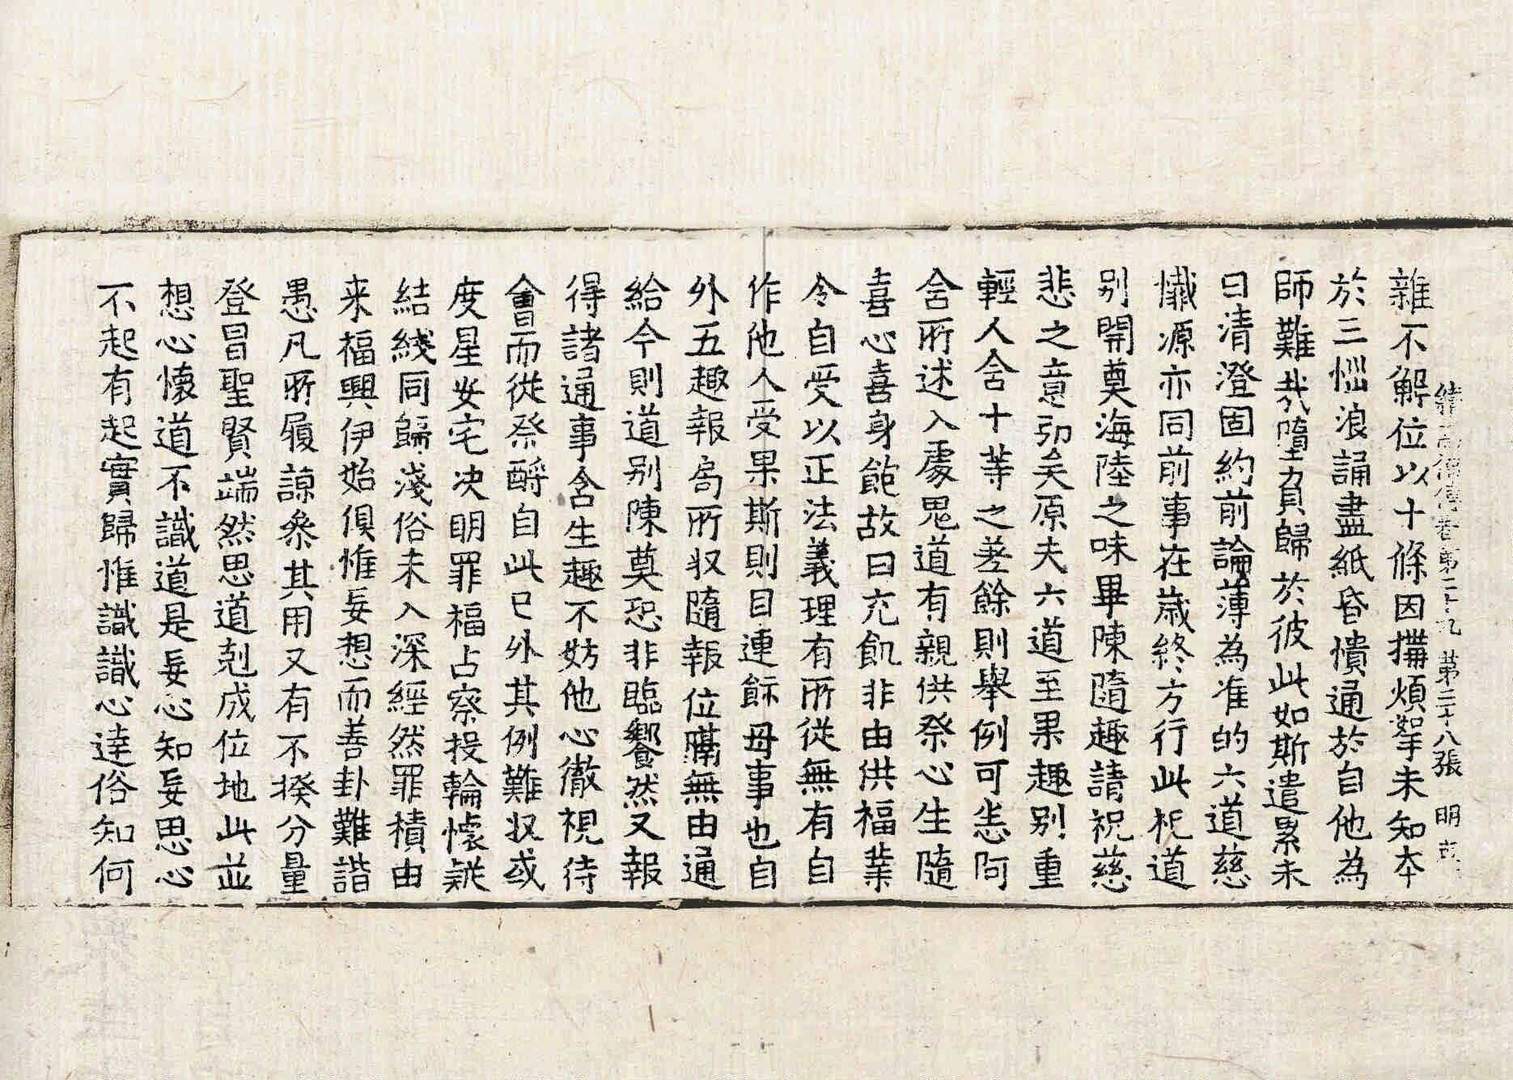 續高僧傳卷第二十九 第三十八張 明
雜不解位以十條因搆煩拏未知本
於三惱浪誦盡紙昏憒通於自他為
師難哉墮負歸於彼此如斯遣累未
曰清澄固約前論薄為准的六道慈
懺源亦同前事在歲終方行此祝道
別開奠海陸之味畢陳隨趣請祝慈
悲之意弘矣原夫六道至果趣別重
輕人含十等之差餘則舉例可悉阿
含所述入處鬼道有親供祭心生隨
喜心喜身飽故曰充飢非由供福業
令自受以正法義理有所從無有自
作他人受果斯則目連餗母事也自
外五趣報局所収隨報位隔無由通
給今則道別陳奠恐非臨饗然又報
得諸通事含生趣不妨他心徹視待
會而從祭酹自此已外其例難収或
度星安宅决明罪福占察投輪懷疑
結綫同歸淺俗未入深經然罪積由
来福興伊始俱惟妄想而善卦難諧
愚凡所履諒叅其用又有不揆分量
登冒聖賢端然思道剋成位地此並
想心懷道不識道是妄心知妄思心
不起有起實歸惟識識心達俗知何